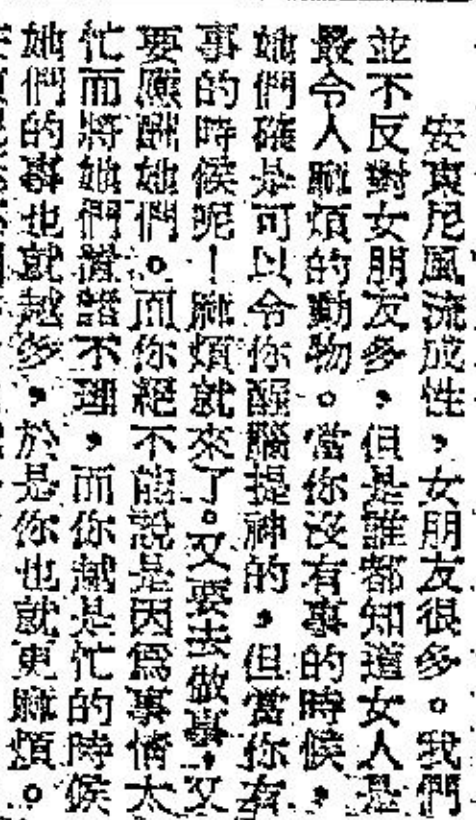 安東尼風流成性，女朋友很多。我們
並不反對女朋友多，但是誰都知道女人是
最令人麻煩的動物。當你沒有事的時候，
她們確是可以令你醒腦提神的，但當你有
事的時候呢！麻煩就來了。又要去做事，又
要應酬她們。而你絕不能說是因爲事情太
忙而將她們置諸不理，而你越是忙的時候
她們的事也就越多，於是你也就更麻煩。